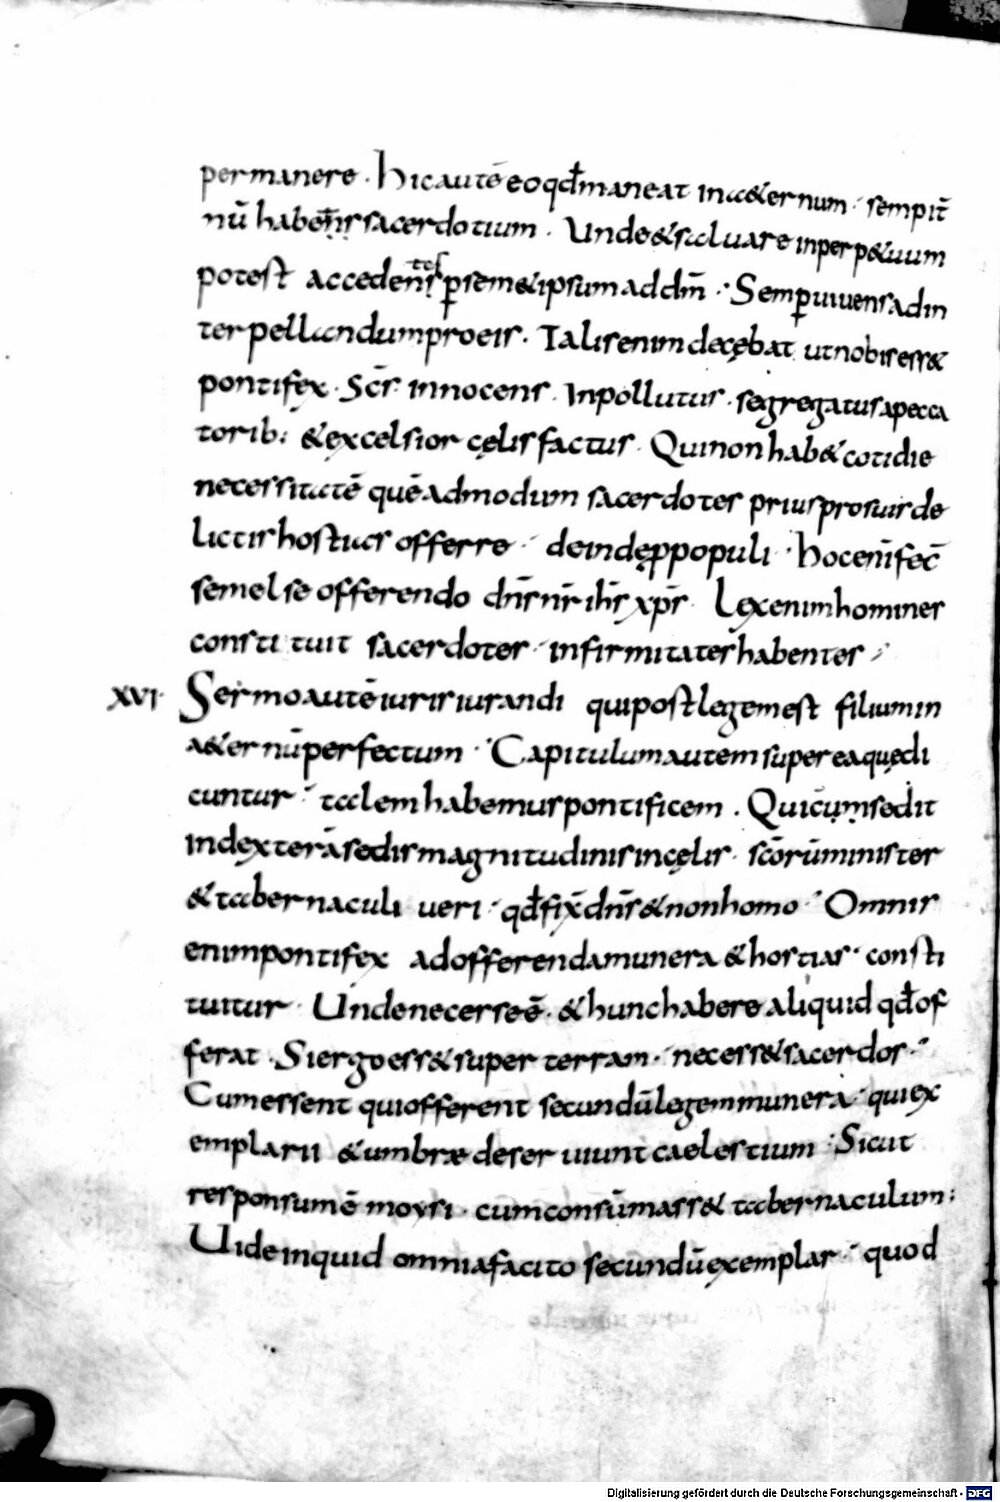 permanere · hic autē eo qđ maneat in aeternum · sempit̄
nū habens sacerdotium · Unde & saluare inperp&uum
potest accedentes p̱ sem&ipsum ad dm̄ · Semp̱ uiuens adin
terpellandum pro eis · Talis enim decębat ut nobis ess&
pontifex · sc̄s innocens · Inpollutus · segregatus a pecca
torib; & excelsior cęlis factus · Qui non hab& cotidie
necessitatē quēadmodum sacerdotes prius pro suis de
lictis hostias offerre · deinde p̱ populi · hoc eni̅ fec̄
semel se offerendo dn̄s nr̄ ih̄s xp̄s · Lex enim homines
constituit sacerdotes · infirmitatem habentes ·
XVI · Sermo autē iurisiurandi qui post legem est filium in
a&ernū perfectum · Capitulum autem super ea quę di
cuntur · talem habemus pontificem · Qui cum sedit
in dexterā sedis magnitudinis in cęlis · scōrū minister
& tabernaculi ueri · qđ fix̄ dn̄s & non homo · Omnis
enim pontifex ad offerenda munera & hostias · consti
tuitur · Unde necesse ē · & hunc habere aliquid qđ of
ferat · Si ergo ess& super terram · nec ess& sacerdos ·
Cum essent qui offerent secundū legem munera · qui ex
emplarii & umbræ deseruiunt caelestium · Sicut
responsum ē moysi · cum consūmass& tabernaculum ;
Uide inquid omnia facito secundū exemplar · quod
Digitalisierung gefördert durch die Deutsche Forschungsgemeinschaft - DFG